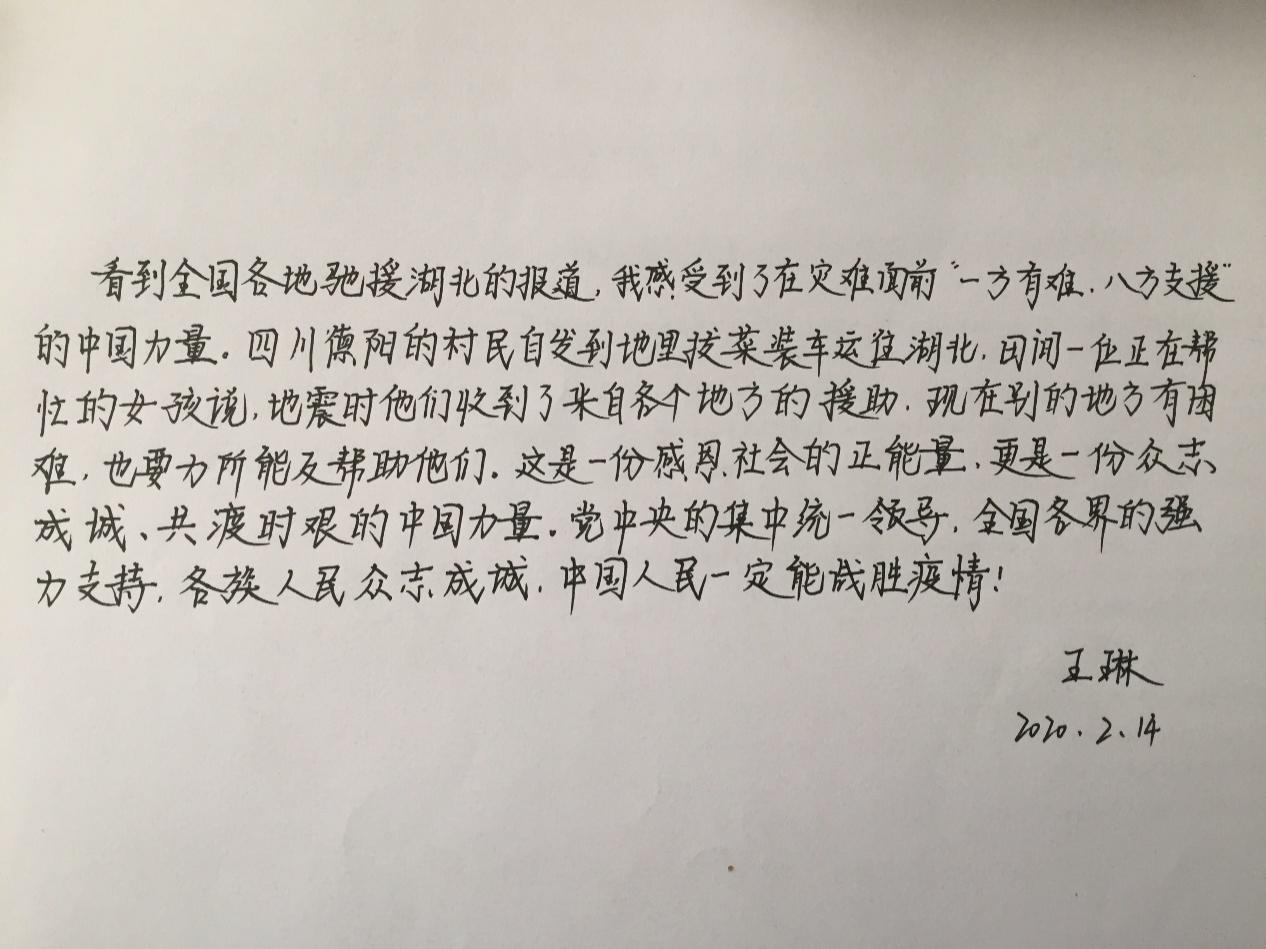 看到全国各地驰援湖北的报道,我感受到了在灾难面前“一方有难,八方支援”
的中国力量。四川德阳的村民自发到地里拔菜装车运往湖北,田间一位正在帮
忙的女孩说,地震时他们收到了来自各个地方的援助,现在别的地方有困
难,也要力所能及帮助他们。这是一份感恩社会的正能量,更是一份众志
成城、共渡时艰的中国力量。党中央的集中统一领导,全国各界的强
力支持,各族人民众志成城,中国人民一定能战胜疫情!
王琳
2020.2.14